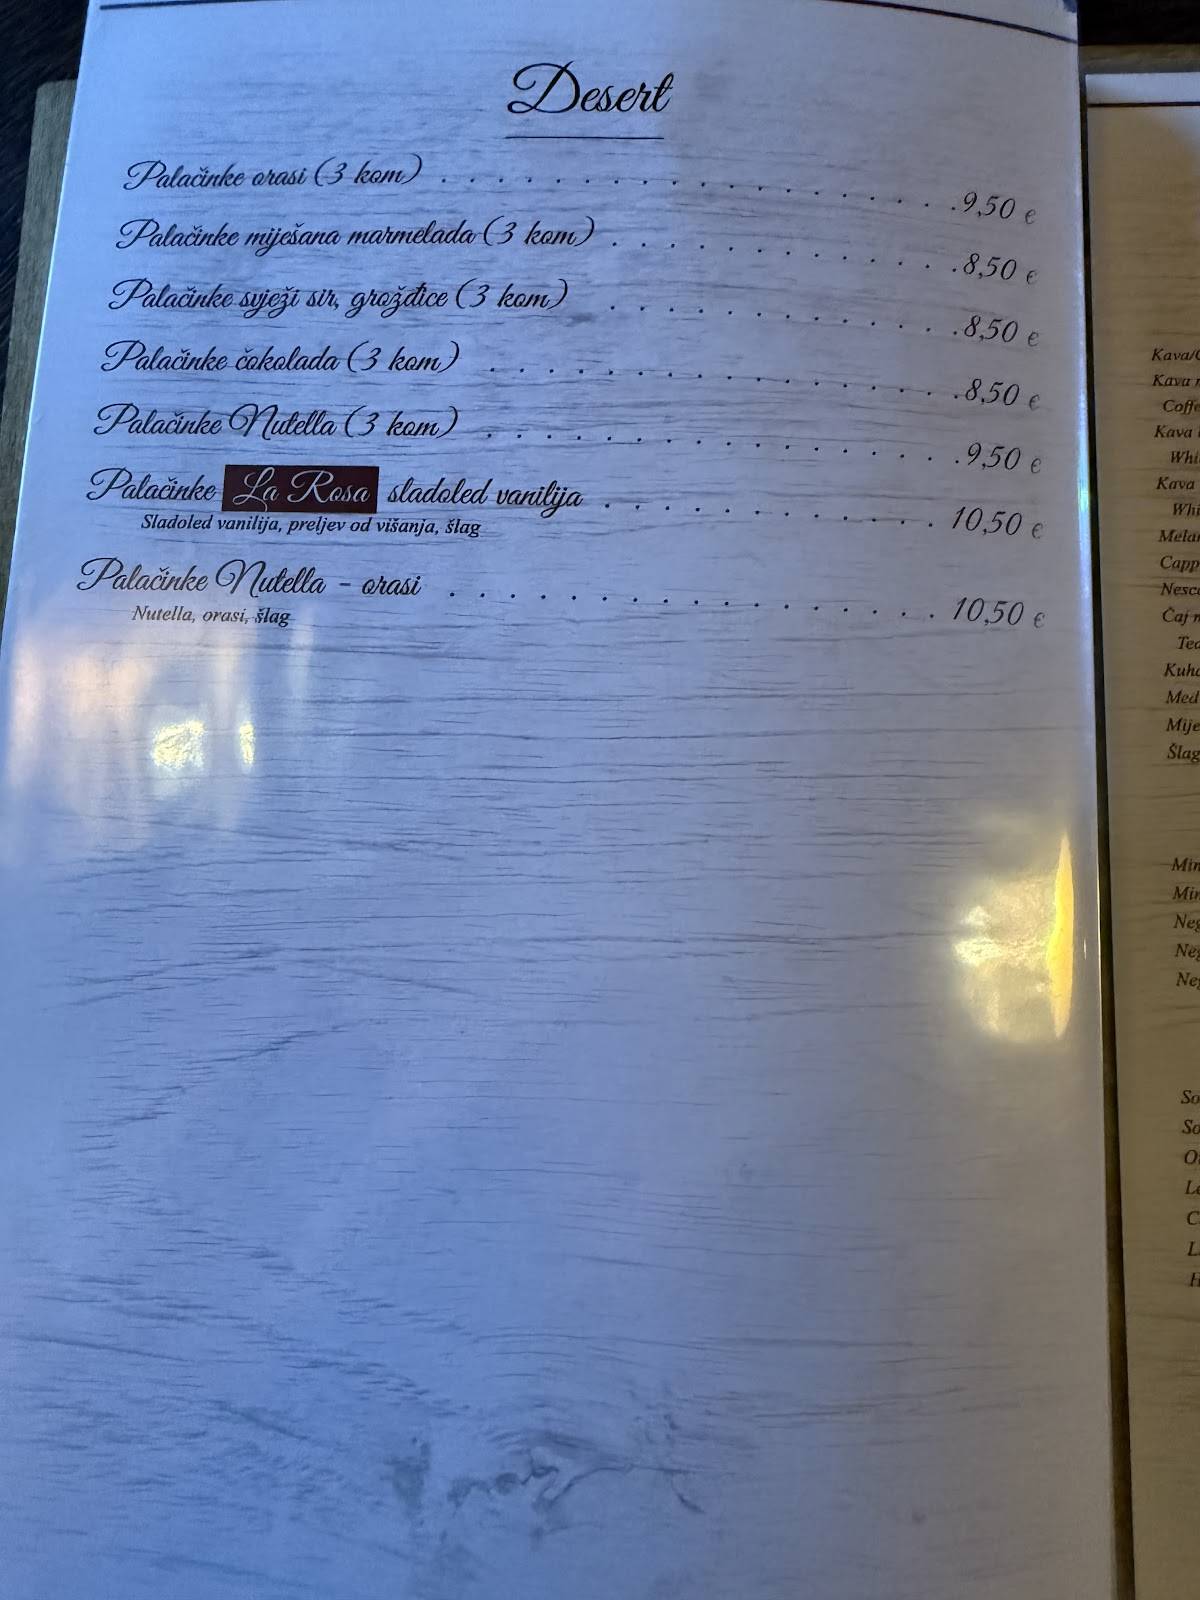 Desert
Palačinke orasi (3 kom) . . . . . . . . . . . . . . . . . . . 9,50 €
Palačinke miješana marmelada (3 kom) . . . . . . . . . . . . . 8,50 €
Palačinke svježi sir, grožđice (3 kom) . . . . . . . . . . . . . 8,50 €
Palačinke čokolada (3 kom) . . . . . . . . . . . . . . . . . 8,50 €
Palačinke Nutella (3 kom) . . . . . . . . . . . . . . . . . 9,50 €
Palačinke La Rosa sladoled vanilija . . . . . . . . . . . . . 10,50 €
Sladoled vanilija, preljev od višanja, šlag
Palačinke Nutella - orasi . . . . . . . . . . . . . . . . . . 10,50 €
Nutella, orasi, šlag
Kava/
Kava
Kava
Kava
Nesc
Čaj
Med
Šlag